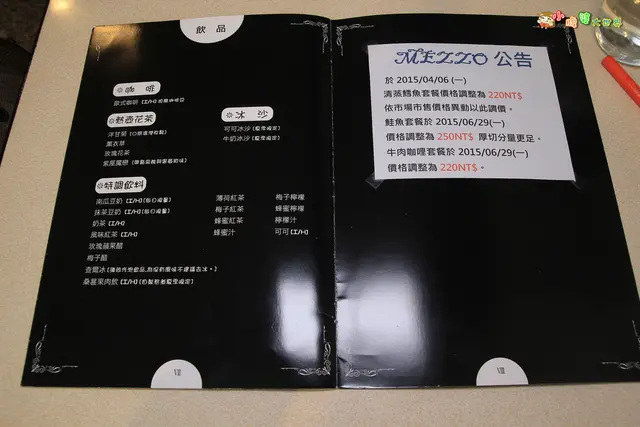 小 大世界
飲品
咖啡
歐式咖啡 (I/H)
熱壺花茶
洋甘菊
薰衣草
玫瑰花茶
紫羅蘭戀
冰沙
可可冰沙
牛奶冰沙
特調飲料
南瓜豆奶 (I/H)
抹茶豆奶 (I/H)
奶茶 (I/H)
風味紅茶 (I/H)
玫瑰蘋果醋
梅子醋
查爾冰
桑葚果肉飲 (I/H)
薄荷紅茶
梅子紅茶
蜂蜜紅茶
蜂蜜汁
梅子檸檬
蜂蜜檸檬
檸檬汁
可可 (I/H)
VII
MEZZO 公告
於 2015/04/06 (一)
清蒸鱈魚套餐價格調整為 220NT$
依市場市售價格異動以此調價。
鮭魚套餐於 2015/06/29(一)
價格調整為 250NT$ 厚切分量更足。
牛肉咖哩套餐於 2015/06/29(一)
價格調整為 220NT$。
VIII